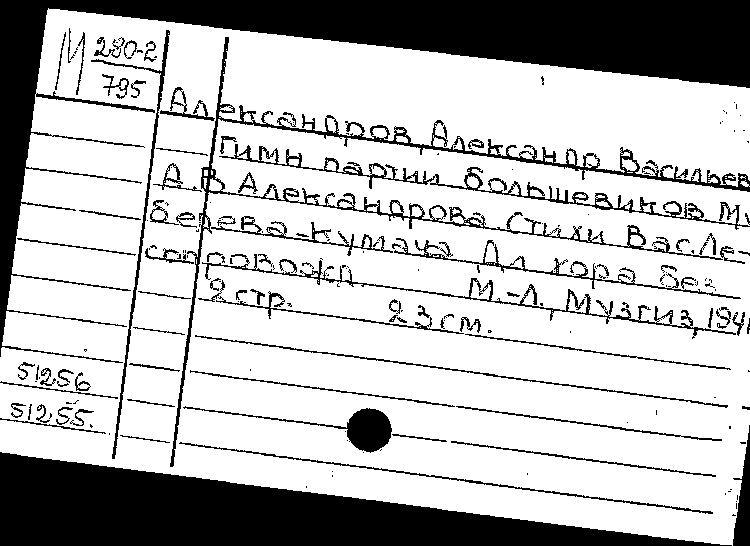 М 280-2
795
Александров, Александр Васильев
Гимн партии большевиков. Му
А.В Александрова. Стихи Вас. Ле-
бедева-Кумача Дл хора без
сопровожд М.-Л., Музгиз, 1941
2 стр. 23 см.
51256
51255.